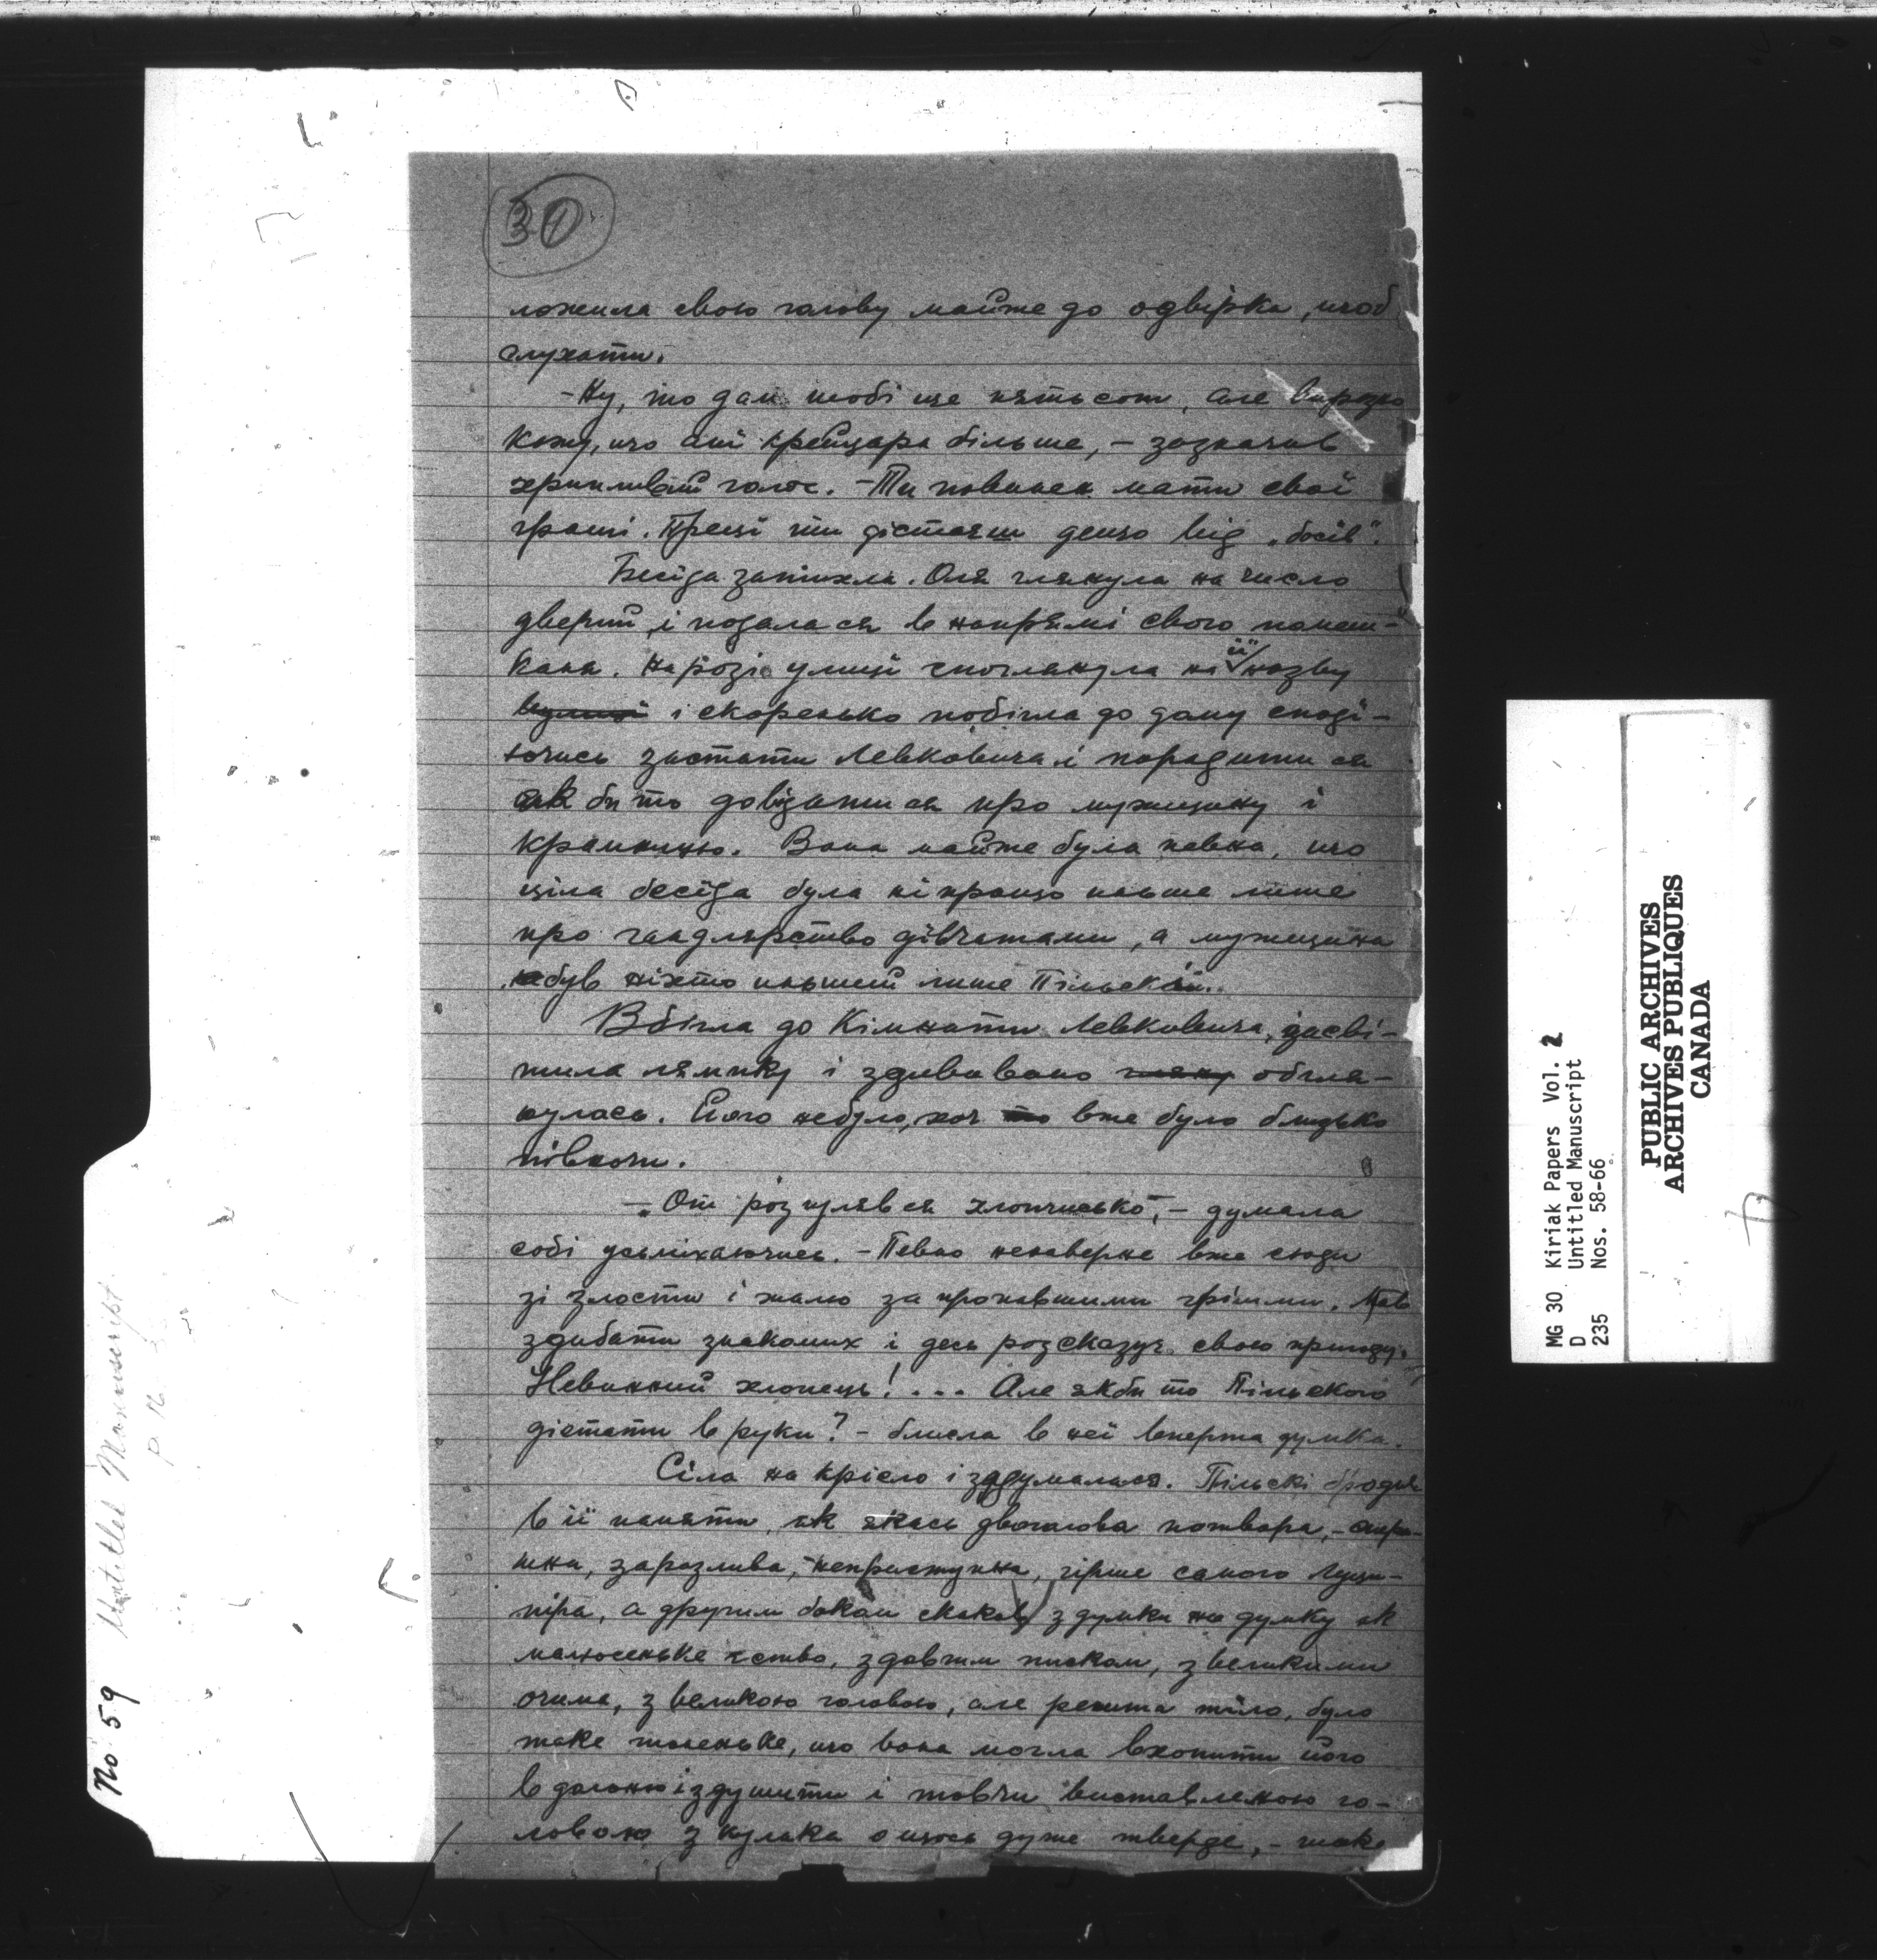 30
ложила свою голову майже до одвірка, щоб
слухати.
- Ну, то дам тобі ще пятьсот, але виразно
кажу, що ані крейцара більше, - зазначив
хрипливий голос. - Ти повинен мати свої
гроші. Прецї ти дістаєш дещо від „босів".
Бесіда затихла. Оля глянула на число
дверий, і подалася в напрямі свого помеш-
кання. На розі улиці споглянула на її назву
і скоренько побігла до дому споді-
ючись застати Левковича і порадитися
як би то довідатися про мужщину і
крамницю. Вона майже була певна, що
ціла бесіда була ні про що иньше лише
про гандлярство дівчатами, а мужщина
був ніхто иньший лише Пільский.
Вбігла до кімнати Левковича, засві-
тила лямпку і здивовано обгля-
нулась. Його небуло, хоч вже було близько
півночи.
- „От розгулявся хлопчисько", - думала
собі усьміхаючись. - Певно незаверне вже сюди
зі злости і жалю за пропавшими грішми. Мав
здибати знакомих і десь розсказує свою пригоду.
Невинний хлопець! ... Але якби то Пільского
дістати в руки? - блисла в неї вперта думка.
Сіла на крісло і задумалася. Пільскі
в її памяти, як якась двоголова потвора, -
шна, заразлива, неприступна, гірше самого Люци-
піра, а другим боком скакав з думки на думку як
малюсеньке, з довгим писком, з великими
очима, з великою головою, але решта тіло, було
таке маленьке, що вона могла вхопити його
в долоню і здушити і товчи виставленою го-
ловою з кулака о щось дуже тверде, - таке
No 59 Untitled Manuscript
MG 30 Kiriak Papers Vol. 2
D Untitled Manuscript
235 Nos. 58-66
PUBLIC ARCHIVES
ARCHIVES PUBLIQUES
CANADA